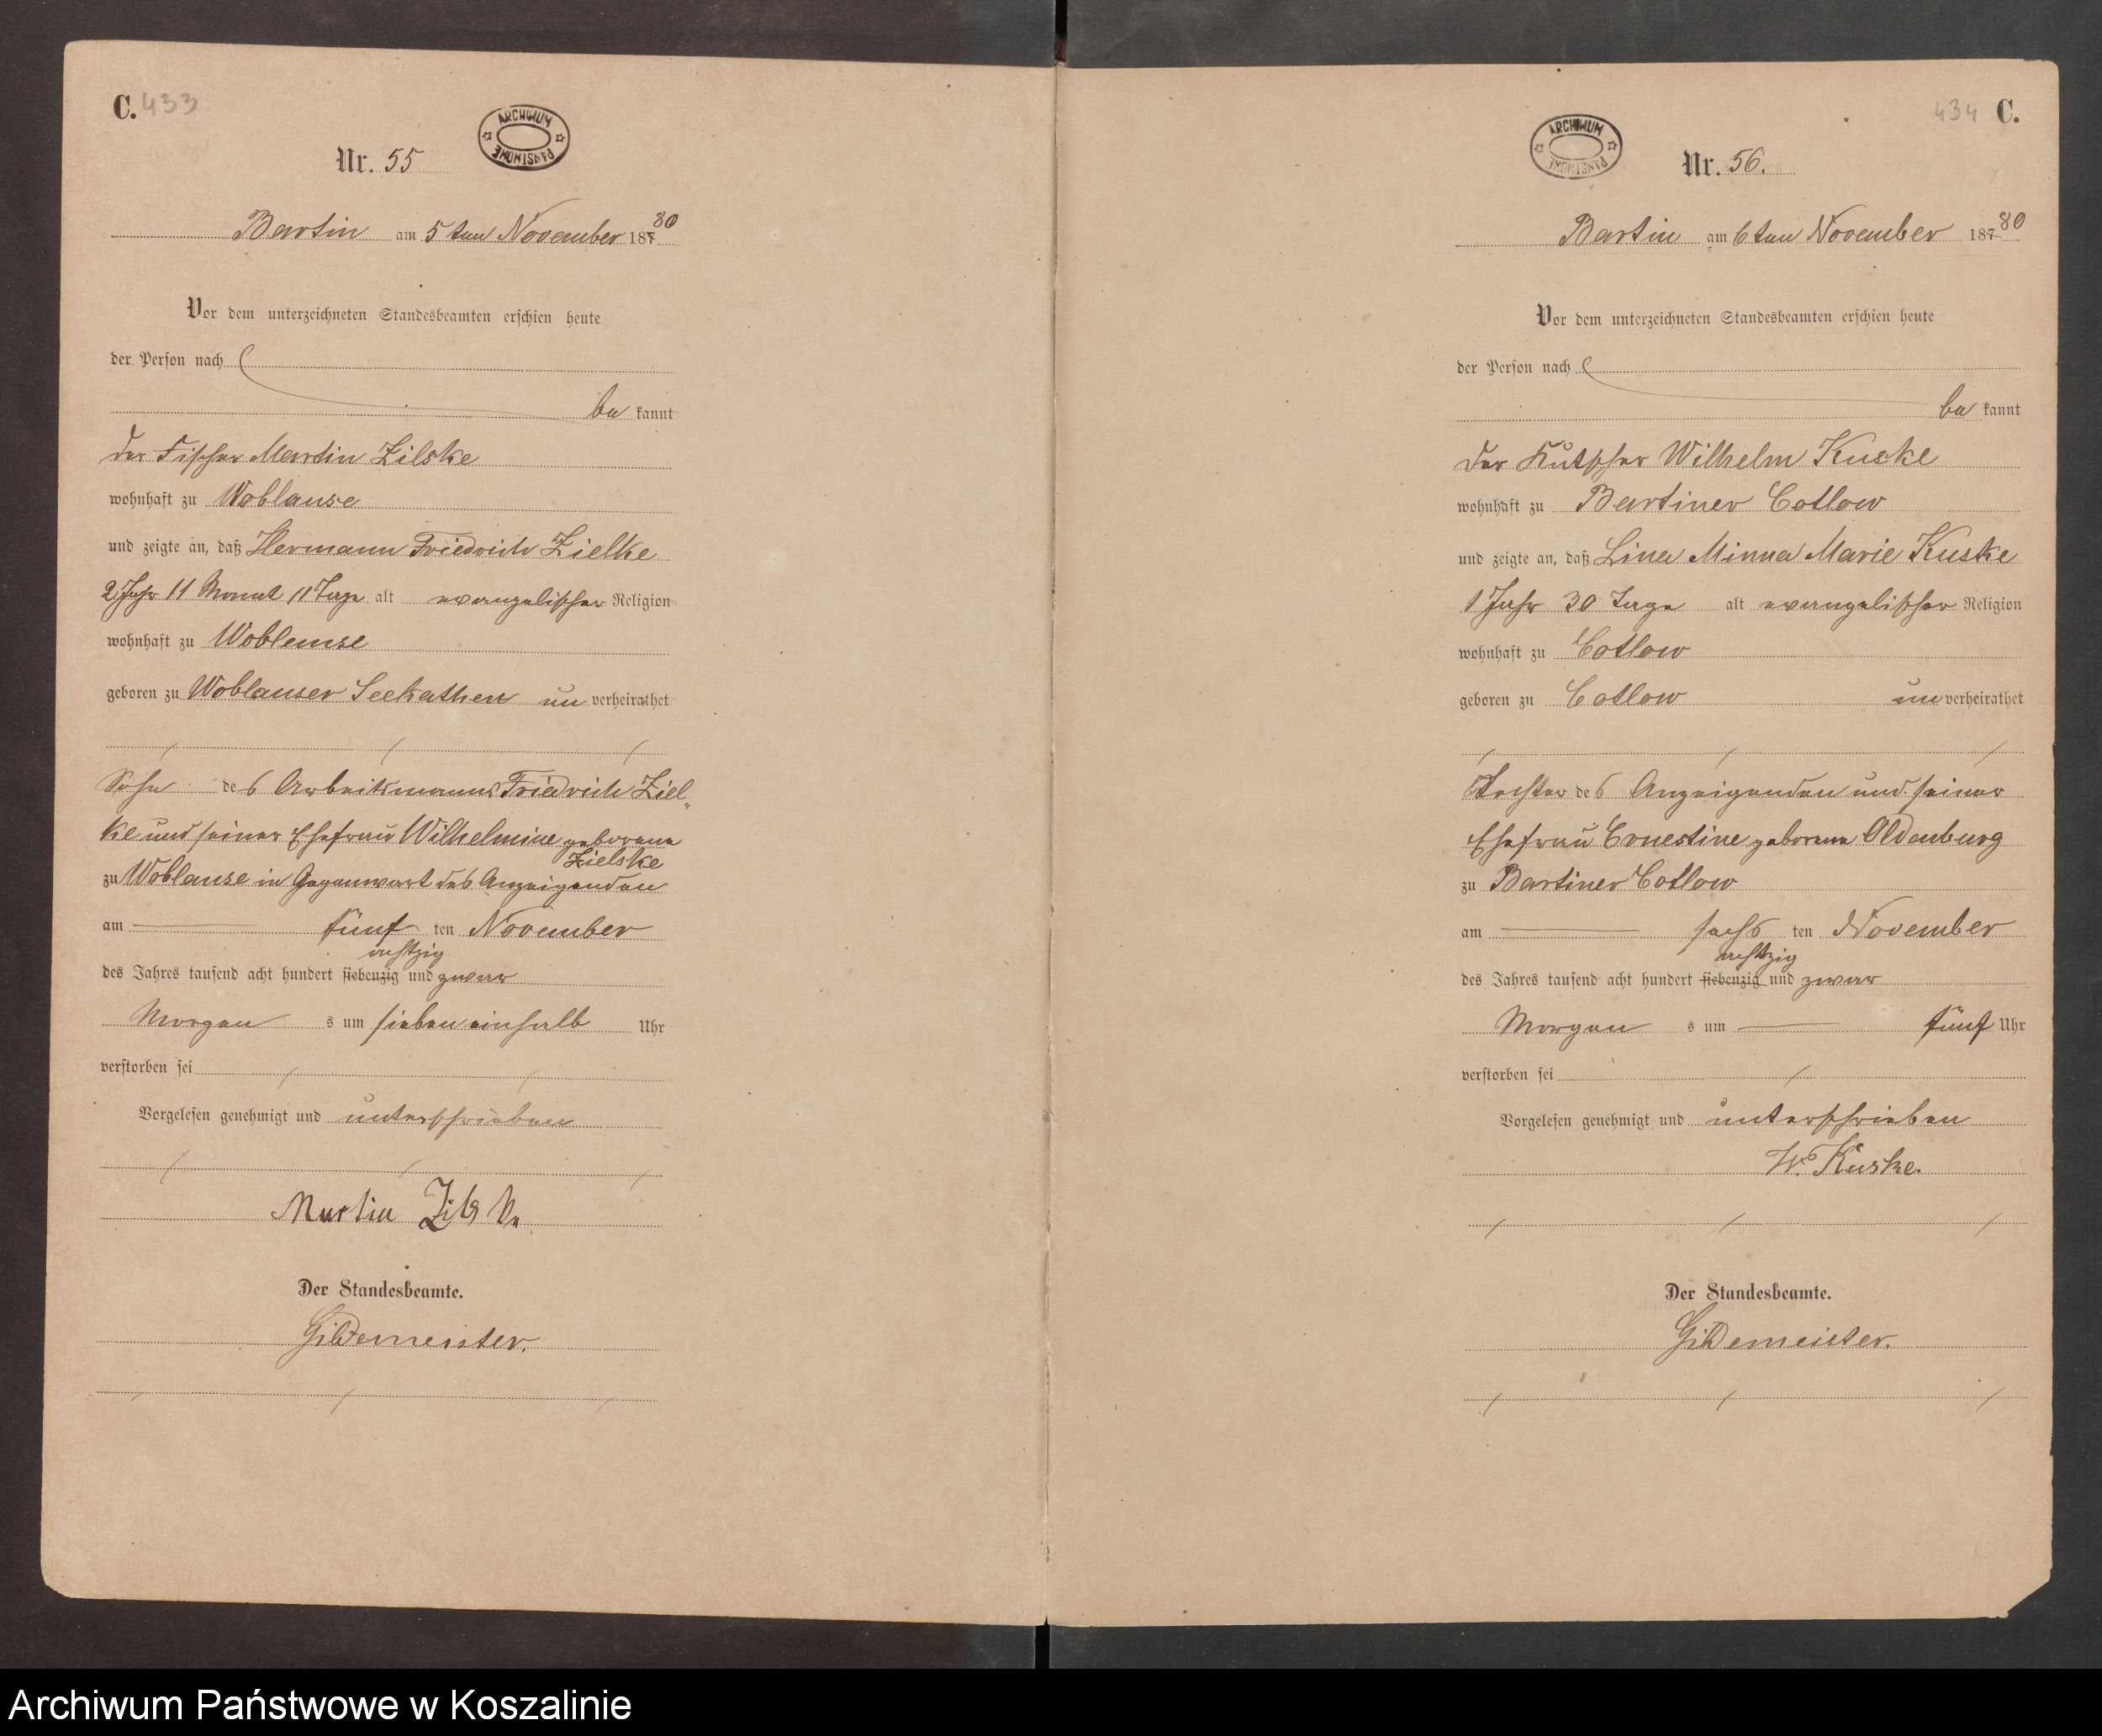 C. 433
ARCHIWUM PAŃSTWOWE
Nr. 55
Bartin am 5ten November 1880
Vor dem unterzeichneten Standesbeamten erschien heute
der Person nach
be kannt
der Fischer Martin Zilske
wohnhaft zu Woblanse
und zeigte an, daß Hermann Friedrich Zielke
2 Jahr 11 Monat 11 Tage alt evangelischer Religion
wohnhaft zu Woblanse
geboren zu Woblanser Seekathen un verheirathet
Sohn des Arbeitsmanns Friedrich Ziel„
ke und seiner Ehefrau Wilhelmine geborene
Zielske
zu Woblanse in Gegenwart des Anzeigenden
am fünf ten November
achtzig
des Jahres tausend acht hundert siebenzig und zwar
Morgen s um sieben einhalb Uhr
verstorben sei
Vorgelesen genehmigt und unterschrieben
Martin Zilske
Der Standesbeamte.
Gildemeister.
434 C.
ARCHIWUM PAŃSTWOWE
Nr. 56.
Bartin am 6ten November 18780
Vor dem unterzeichneten Standesbeamten erschien heute
der Person nach
be kannt
der Kutscher Wilhelm Kuske
wohnhaft zu Bartiner Cotlow
und zeigte an, daß Lina Minna Marie Kuske
1 Jahr 30 Tage alt evangelischer Religion
wohnhaft zu Cotlow
geboren zu Cotlow un verheirathet
Tochter des Anzeigenden und seiner
Ehefrau Ernestine geborene Oldenburg
zu Bartiner Cotlow
am sechs ten November
achtzig
des Jahres tausend acht hundert siebenzig und zwar
Morgen s um fünf Uhr
verstorben sei
Vorgelesen genehmigt und unterschrieben
W. Kuske.
Der Standesbeamte.
Gildemeister.
Archiwum Państwowe w Koszalinie